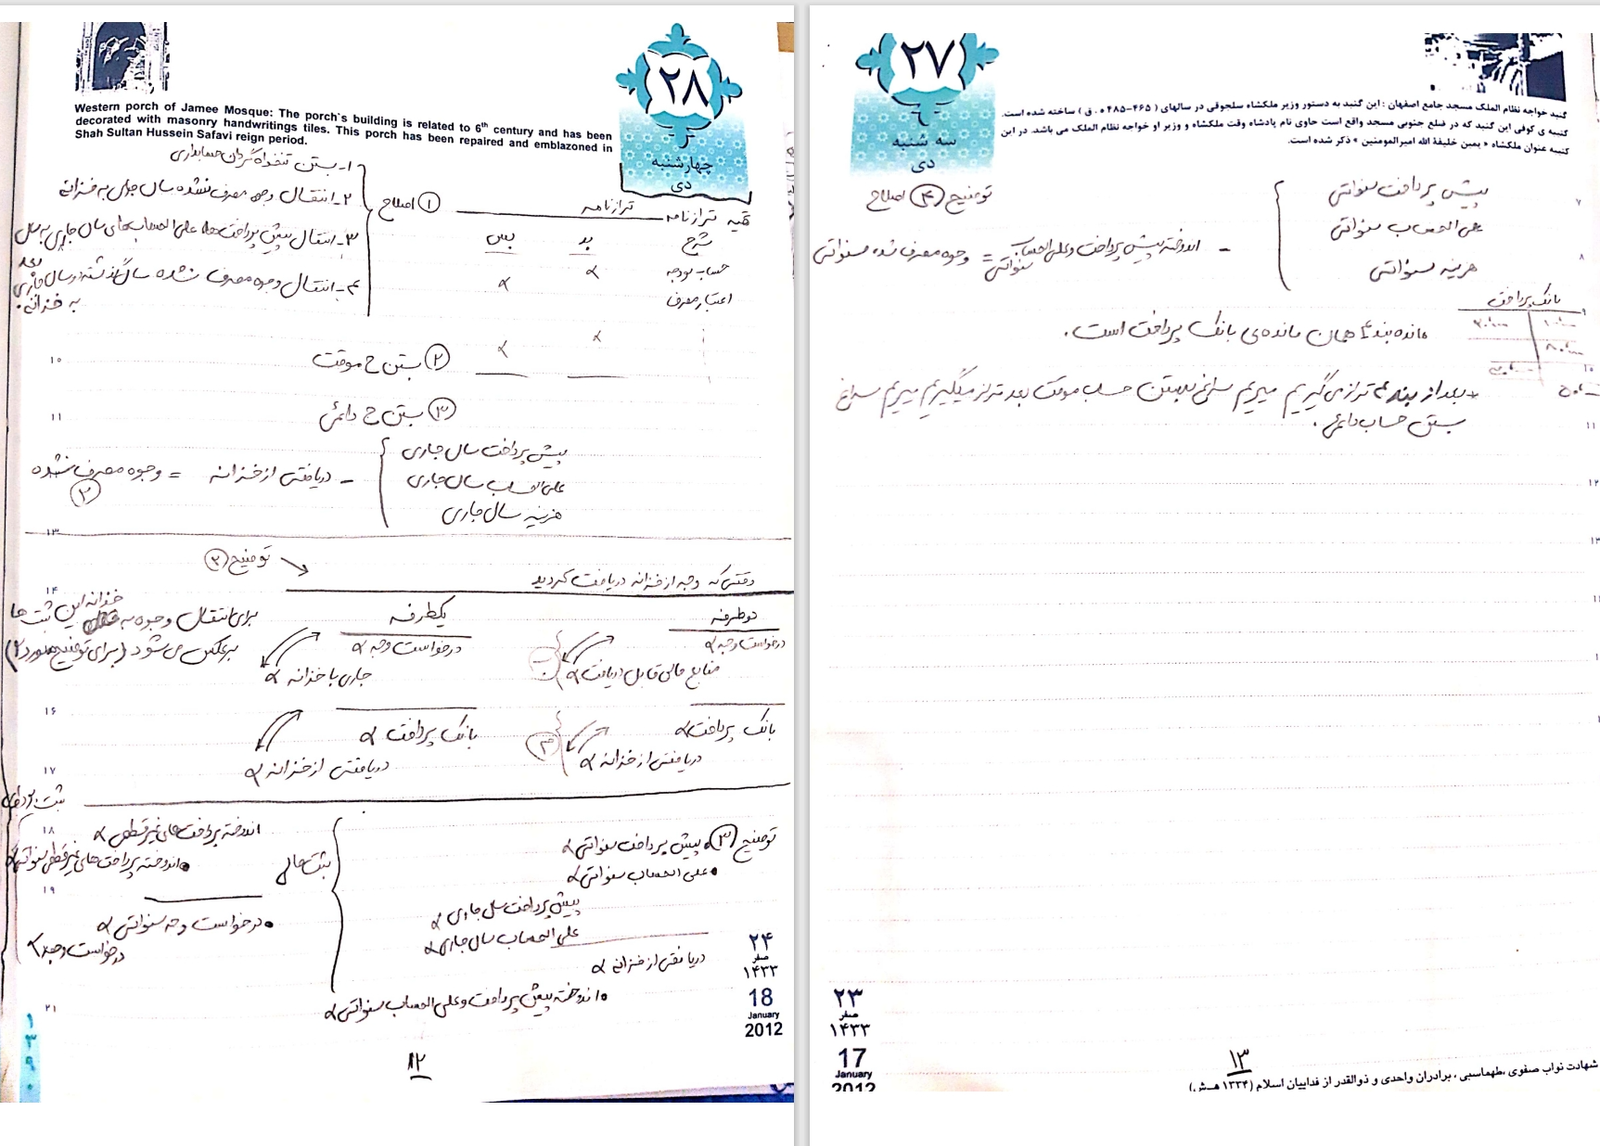 Western porch of Jamee Mosque: The porch`s building is related to 6th century and has been
decorated with masonry handwritings tiles. This porch has been repaired and emblazoned in
Shah Sultan Hussein Safavi reign period.
۲۸
چهارشنبه
دی
۱- بستن تنخواه گردان حسابداری
۲- انتقال وجوه مصرف نشده سال جاری به خزانه
۳- انتقال پیش پرداخت ها، علی الحساب های سال جاری به سال بعد
۴- انتقال وجوه مصرف نشده سال گذشته در سال جاری
به خزانه.
① اصلاح
تهیه ترازنامه
ترازنامه
شرح بد بس
حساب بودجه × ×
اعتبار مصرف
× ×
۱۰
② بستن ح موقت
۱۱
③ بستن ح دائمی
پیش پرداخت سال جاری
علی الحساب سال جاری
هزینه سال جاری
- دریافتی از خزانه = وجوه مصرف نشده
②
۱۳
توضیح ②
۱۴
وقتی که وجه از خزانه دریافت کردید
دوطرفه
درخواست وجه ×
منابع مالی قابل دریافت ×
بانک پرداخت ×
دریافتی از خزانه ×
یکطرفه
درخواست وجه ×
جاری با خزانه ×
بانک پرداخت ×
دریافتی از خزانه ×
برای انتقال وجوه به خزانه این ثبت ها
برعکس می شود (برای توضیح مورد ۲)
۱۶
۱۷
ثبت بودجه ای
۱۸
توضیح ③
• پیش پرداخت سنواتی ×
• علی الحساب سنواتی ×
پیش پرداخت سال جاری ×
علی الحساب سال جاری ×
دریافتی از خزانه ×
• اندوخته پیش پرداخت و علی الحساب سنواتی ×
ثبت مالی
اندوخته پرداخت های غیر قطعی ×
• اندوخته پرداخت های غیر قطعی سنواتی ×
۱۹
• درخواست وجه سنواتی ×
درخواست وجه ×
۲۱
۲۴
صفر
۱۴۳۳
18
January
2012
۱۳۹۰
۱۲
۲۷
سه شنبه
دی
گنبد خواجه نظام الملک مسجد جامع اصفهان : این گنبد به دستور وزیر ملکشاه سلجوقی در سالهای ( ۴۶۵-۴۸۵ ه . ق ) ساخته شده است.
کتیبه ی کوفی این گنبد که در ضلع جنوبی مسجد واقع است حاوی نام پادشاه وقت ملکشاه و وزیر او خواجه نظام الملک می باشد. در این
کتیبه عنوان ملکشاه « یمین خلیفة الله امیرالمومنین » ذکر شده است.
توضیح ④ اصلاح
۷
پیش پرداخت سنواتی
علی الحساب سنواتی
هزینه سنواتی
۸
- اندوخته پیش پرداخت و علی الحساب سنواتی = وجوه مصرف نشده سنواتی
۹
بانک پرداخت
مانده بند ۴ همان مانده ی بانک پرداخت است.
۱۰
* بعد از بند ۴ تراز می گیریم میریم سراغ بستن حساب موقت بعد تراز میگیریم میریم سراغ
بستن حساب دائمی.
۱۱
۱۲
۱۳
۲۳
صفر
۱۴۳۳
17
January
2012
۱۳
شهادت نواب صفوی ،طهماسبی ، برادران واحدی و ذوالقدر از فداییان اسلام (۱۳۳۴ هـ.ش.)